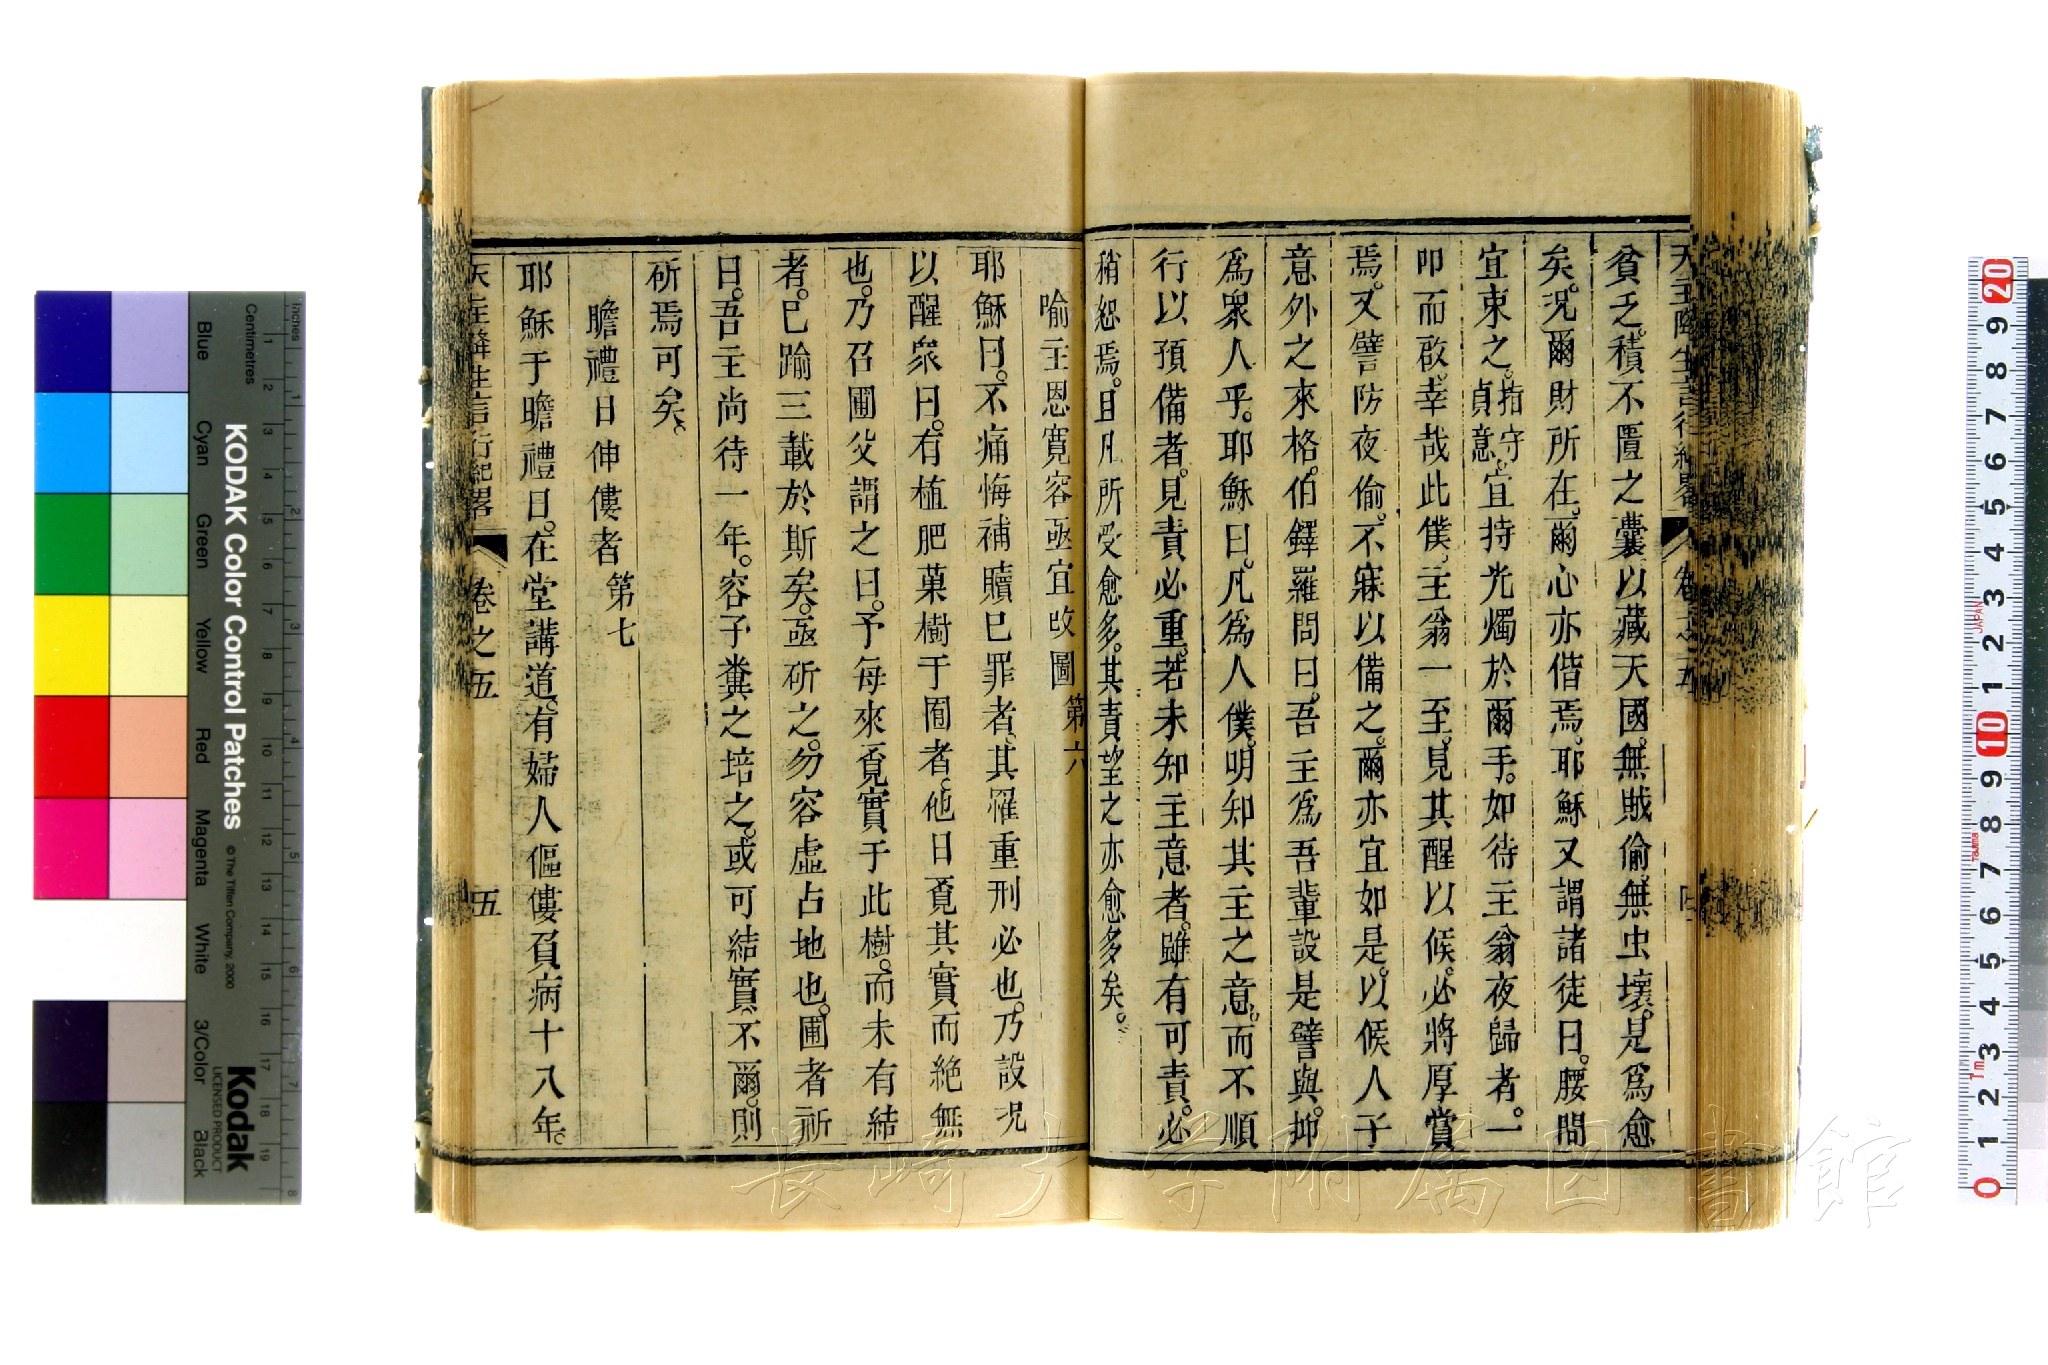 天主降生言行紀畧 卷之五
貧乏。積不匱之囊以藏天國。無賊偷。無虫壞。是爲愈
矣。况爾財所在。爾心亦偕焉。耶穌又謂諸徒曰。腰間
宜束之。指守貞意。宜持光燭於爾手。如待主翁夜歸者。一
叩而啟。幸哉此僕。主翁一至。見其醒以候。必將厚賞
焉。又譬防夜偷。不寐以備之。爾亦宜如是。以候人子
意外之來格。伯鐸羅問曰。吾主爲吾輩設是譬與。抑
爲衆人乎。耶穌曰。凡爲人僕。明知其主之意。而不順
行以預備者。見責必重。若未知主意者。雖有可責。必
稍恕焉。且凡所受愈多。其責望之亦愈多矣。
喻主恩寬容亟宜改圖 第六
耶穌曰。不痛悔補贖已罪者。其罹重刑必也。乃設况
以醒衆曰。有植肥菓樹于囿者。他日覔其實而絶無
也。乃召圃父謂之曰。予每來覔實于此樹。而未有結
者。已踰三載於斯矣。亟斫之。勿容虛占地也。圃者祈
曰。吾主尚待一年。容子糞之培之。或可結實。不爾。則
斫焉可矣。
瞻禮日伸僂者 第七
耶穌于瞻禮日。在堂講道。有婦人傴僂負病十八年。
天主降生言行紀畧 卷之五 五
KODAK Color Control Patches
© The Tiffen Company, 2000
Kodak
LICENSED PRODUCT
inches
Centimetres
Blue
Cyan
Green
Yellow
Red
Magenta
White
3/Color
Black
長崎大学附属図書館
JAPAN
Tajima
Tm